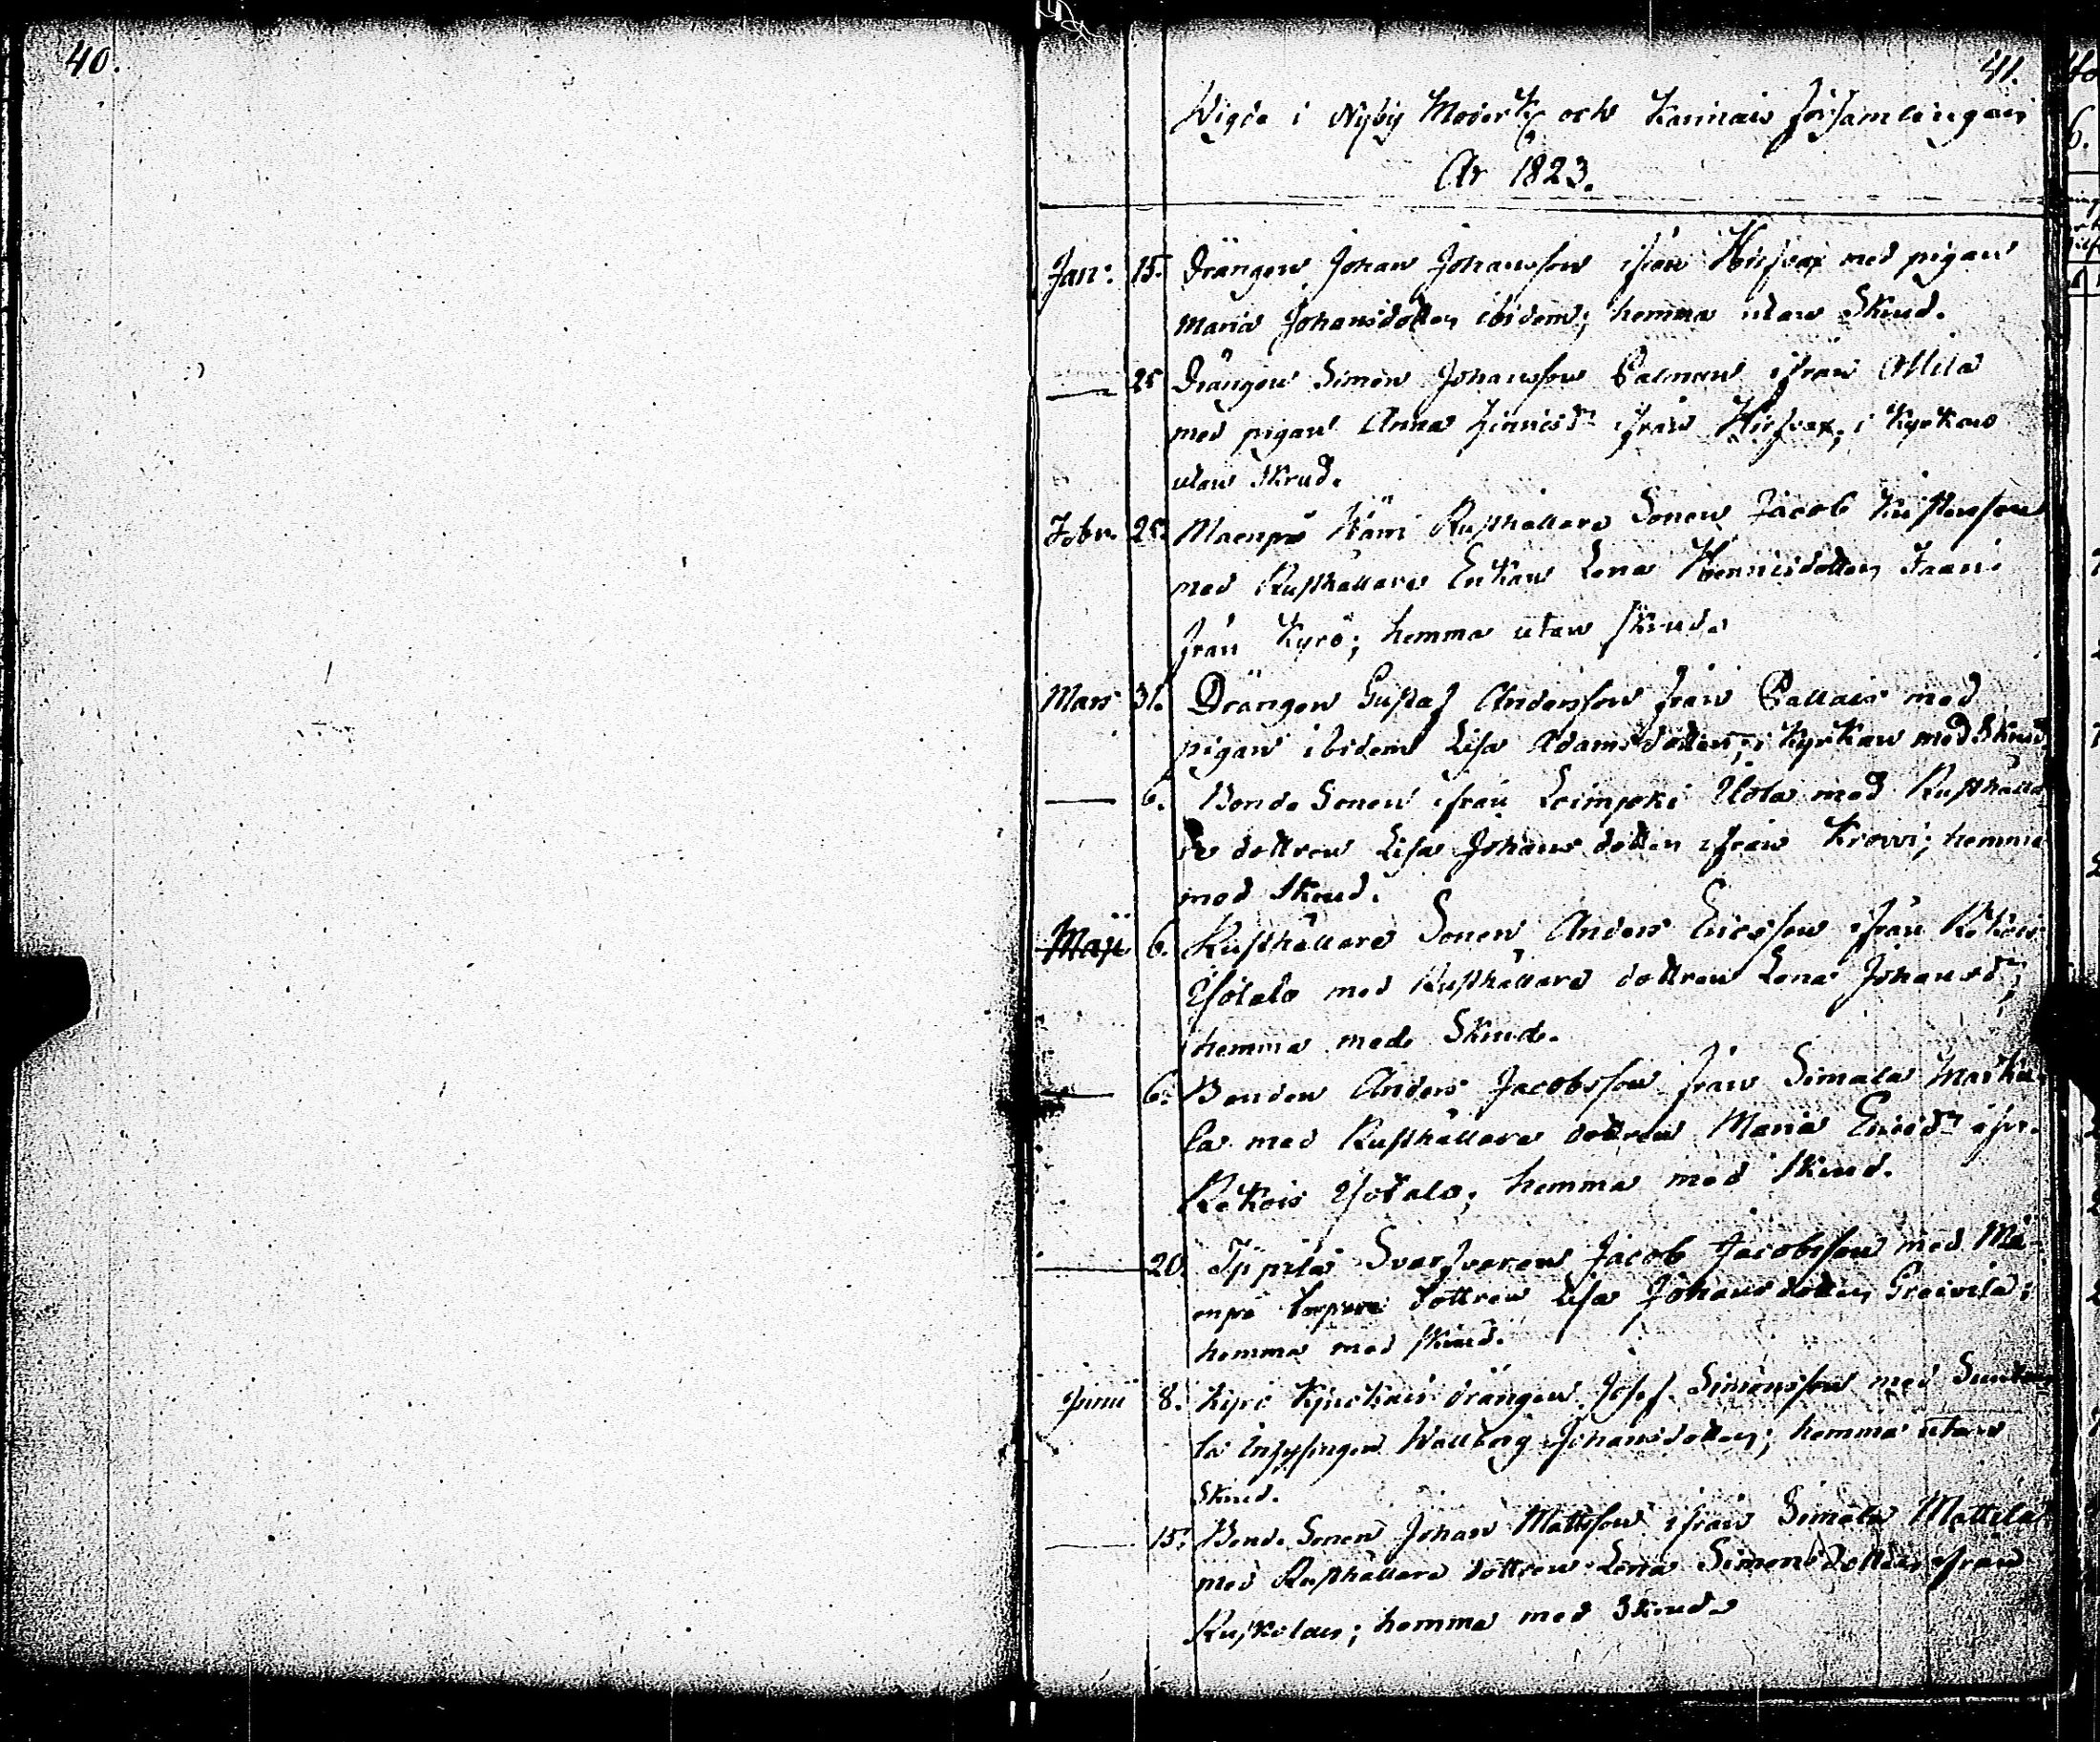 40.
41.
Wigde i Nyby Moderk och Karinais församlingar
År 1823.
Jan: 15. Drängen Johan Johansson ifrån Hirfvax med pigan
Maria Johansdotter ibidem; hemma utan Skrud.
25 Drängen Simon Johansson Palmun ifrån Allila
med pigan Anna Hinricsdr ifrån Hirfvax; i Kyrkan
utan Skrud.
Febr. 25. Maenpä Rusthållare Sonen Jacob
med Rusthållare Enkan Lena Jaani
från Kyrö; hemma utan skrud.
Mars 31. Drängen Gustaf Andersson från Pallais med
pigan ibidem Lisa Adamsdotter; i Kyrkan med Skrud
6. Bonde Sonen ifrån Leinpeki Uola med Rusthålla
re dottren Lisa Johans dotter ifrån Krovi; hemma
med Skrud.
Maji 6. Rusthållare Sonen Anders Ericsson ifrån Rekois
Isotalo med Rusthållare dottren Lena Johansdr;
hemma med Skrud.
6. Bonden Anders Jacobsson från Simala Marku-
la med Rusthållare dottren Maria Ericsdr ifr.
Rekois Isotalo; hemma med skrud.
20. Svarfvaren Jacob Jacobsson med Mä-
enpä dottren Lisa Johans dotter
hemma med skrud.
Junii 8. Kyrö drängen Josef Simonsson med
la Inhysingen Wallborg Johansdotter; hemma utan
Skrud.
15. Bonde Sonen Johan Mattsson ifrån Simala Mattila
med Rusthållare dottren Lena Simonsdotter ifrån
hemma med Skrud.